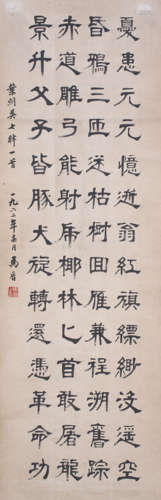 憂患元元憶逝翁紅旗縹緲沒遙空
昏鴉三匝迷枯樹回雁兼程溯舊踪
赤道雕弓能射虎椰林匕首敢屠龍
景升父子皆豚犬旋轉還憑革命功
葉劍英七律一首
一九八二年月